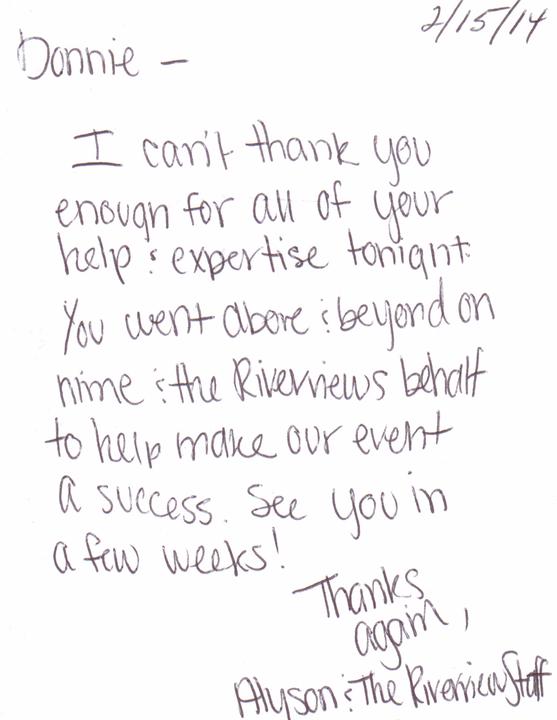 2/15/14
Donnie –
I can't thank you
enough for all of your
help & expertise tonight.
You went above & beyond on
mine & the Riverviews behalf
to help make our event
a success. See you in
a few weeks!
Thanks
again,
Alyson & The Riverview Staff